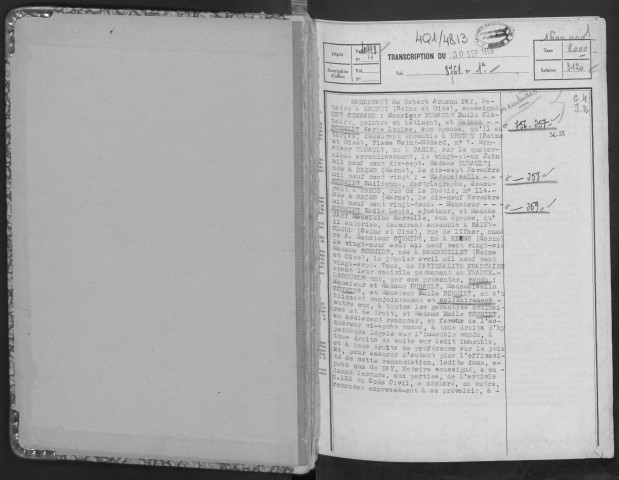 4Q1/4813
Dépôt
Vol.
TRANSCRIPTION DU 30 SEP 1953
Taxe 8000
Inscription d'office
Vol.
Vol. 8761 n° 1
Salaires 3120
PARDEVANT Me Robert Armand FAY, No-
taire à BRUNOY (Seine et Oise), soussigné
ONT COMPARU : Monsieur HUBAULT Emile Clo-
taire, peintre en bâtiment, et Madame - -
SCHMIDT Marie Louise, son épouse, qu'il au-
torise, demeurant ensemble à BRUNOY (Seine
et Oise), Place Saint-Médard, n° 7. Mon-
sieur HUBAULT, né à PARIS, sur le quator-
zième arrondissement, le vingt-un Juin
mil neuf cent dix-sept. Madame HUBAULT,
née à REIMS (Marne), le dix-sept Novembre
mil neuf cent vingt - Mademoiselle - -
SCHMIDT Emilienne, dactylographe, demeu-
rant à PARIS, rue de la Boétie, n° 114.
Née à REIMS (Marne), le dix-neuf Novembre
mil neuf cent vingt-deux. - Monsieur - -
SCHMIDT Emile Louis, ajusteur, et Madame
JARY Madeleine Marcelle, son épouse, qu'
il autorise, demeurant ensemble à SAINT-
CLOUD (Seine et Oise), rue de l'Yser, numé-
ro 8. Monsieur SCHMIDT, né à REIMS (Marne)
le vingt-neuf août mil neuf cent vingt-six
Madame SCHMIDT, née à RAMBOUILLET (Seine
et Oise), le premier avril mil neuf cent
vingt-sept. Tous, de NATIONALITE FRANCAISE
ayant leur domicile permanent en FRANCE.
LESQUELS ont, par ces présentes, vendu :
Monsieur et Madame HUBAULT, Mademoiselle
SCHMIDT, et Monsieur Emile SCHMIDT, en s'o-
bligeant conjointement et solidairement
entre eux, à toutes les garanties ordinai-
res et de droit, et Madame Emile SCHMIDT,
en déclarant renoncer, en faveur de l'ac-
quéreur ci-après nommé, à tous droits d'hy-
pothèque légale sur l'immeuble vendu, à
tous droits de suite sur ledit immeuble,
et à tous droits de préférence sur le prix
Et, pour assurer d'autant plus l'efficaci-
té de cette renonciation, ladite dame, a-
près que Me FAY, Notaire soussigné, a eu
donné lecture, aux parties, de l'article
2.135 du Code Civil, a déclaré, en outre,
renoncer expressément à se prévaloir, à -
256-257
258
259